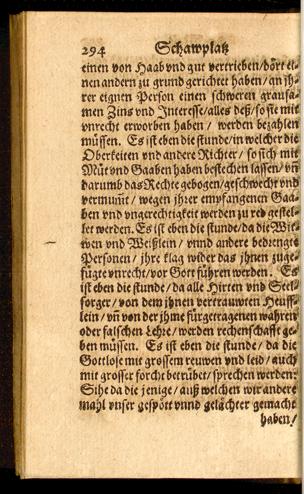 294 Schawplatz
einen von Haab vnd gut vertrieben/dört ei-
nen andern zu grund gerichtet haben/an jh-
rer eignen Person einen schweren grausa-
men Zins vnd Interesse/alles deß/so sie mit
vnrecht erworben haben / werden bezahlen
müssen. Es ist eben die stunde/in welcher die
Oberkeiten vnd andere Richter / so sich mit
Müt vnd Gaaben haben bestechen lassen/ vñ
darumb das Rechte gebogen/geschwecht vnd
vermum̃t / wegen jhrer empfangenen Gaa-
ben vnd vngerechtigkeit werden zu red gestel-
let werden. Es ist eben die stunde/da die Wit-
wen vnd Weißlein / vnnd andere bedrengte
Personen / jhre klag wider das jhnen zuge-
fügte vnrecht/vor Gott führen werden. Es
ist eben die stunde / da alle Hirten vnd Seel-
sorger/ von dem jhnen vertrauwten Heuff-
lein/ vñ von der jhme fürgetragenen wahren
oder falschen Lehre/ werden rechenschafft ge-
ben müssen. Es ist eben die stunde/ da die
Gottlose mit grossem reuwen vnd leid/ auch
mit grosser forcht betrübet/ sprechen werden:
Sihe da die jenige/ auß welchen wir andere
mahl vnser gespött vnnd gelächter gemacht
haben/